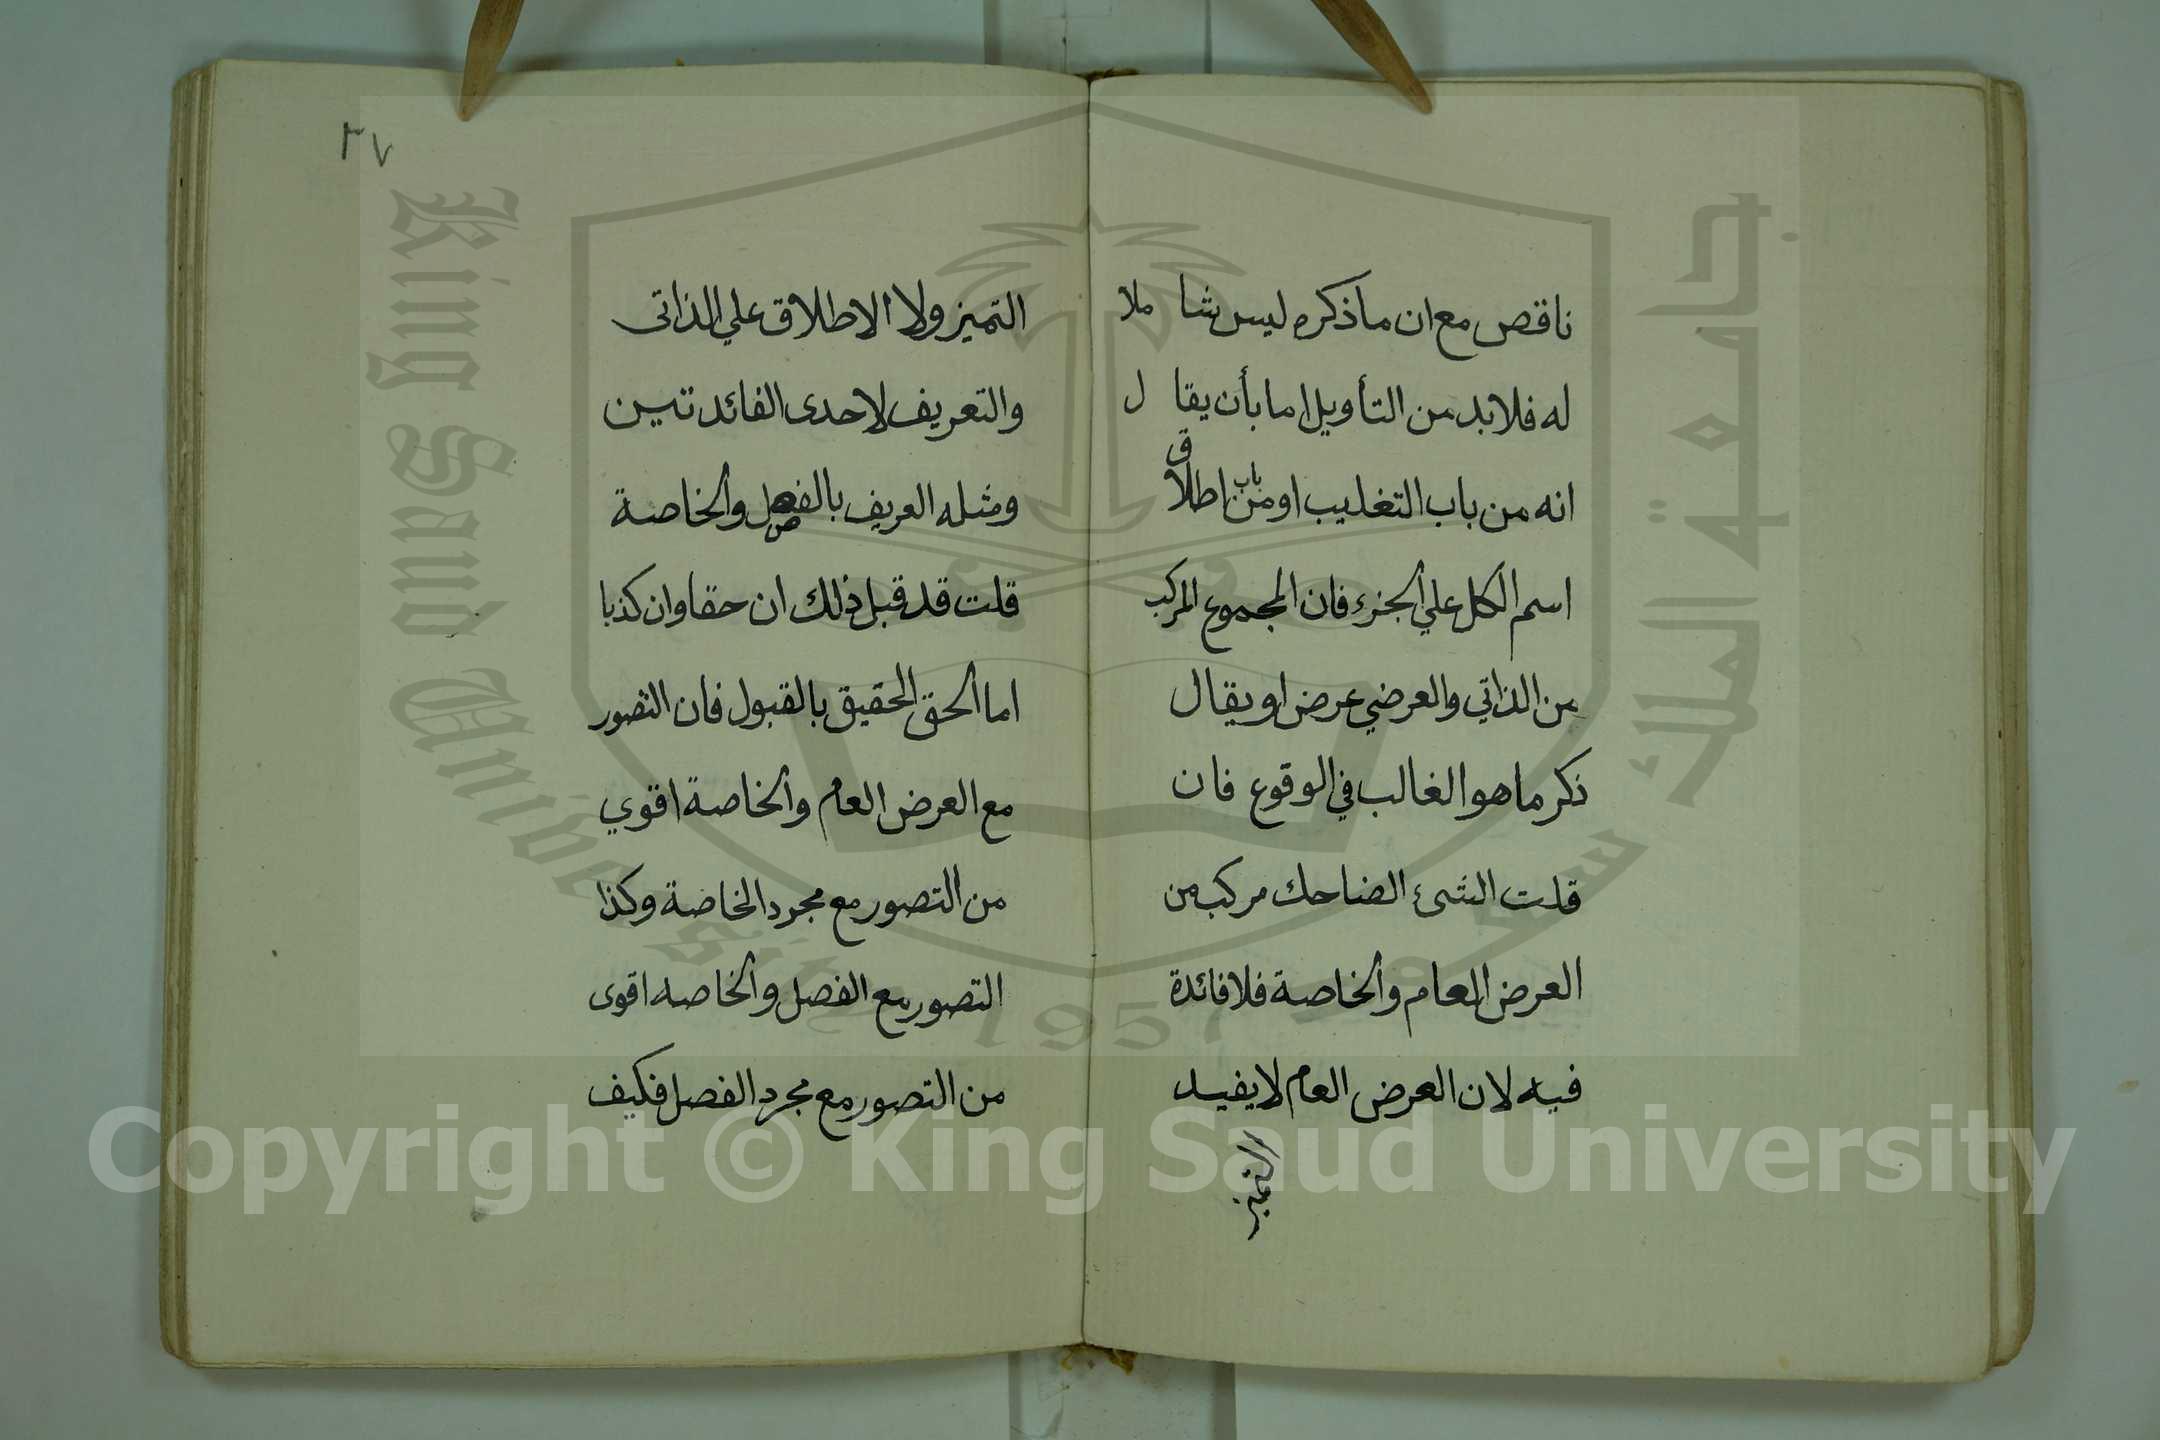 ناقص مع ان ما ذكره ليس شا ملا
له فلا بد من التأويل اما بأن يقا ل
انه من باب التغليب او من باب اطلاق
اسم الكل علي الجزء فان المجموع المركب
من الذاتي والعرضي عرض او يقال
ذكر ما هو الغالب في الوقوع فان
قلت الشئ الضاحك مركب من
العرض العام والخاصة فلا فائدة
فيه لان العرض العام لا يفيد
التميز
٢٧
التميز ولا الاطلاق علي الذاتى
والتعريف لاحدى الفائدتين
ومثله العريف بالفصل والخاصة
قلت قد قبل ذلك ان حقا وان كذبا
اما الحق الحقيق بالقبول فان التصور
مع العرض العام والخاصة اقوي
من التصور مع مجرد الخاصة وكذا
التصور مع الفصل والخاصه اقوى
من التصور مع مجرد الفصل فكيف
جامعة الملك سعود
King Saud University
1957
Copyright © King Saud University